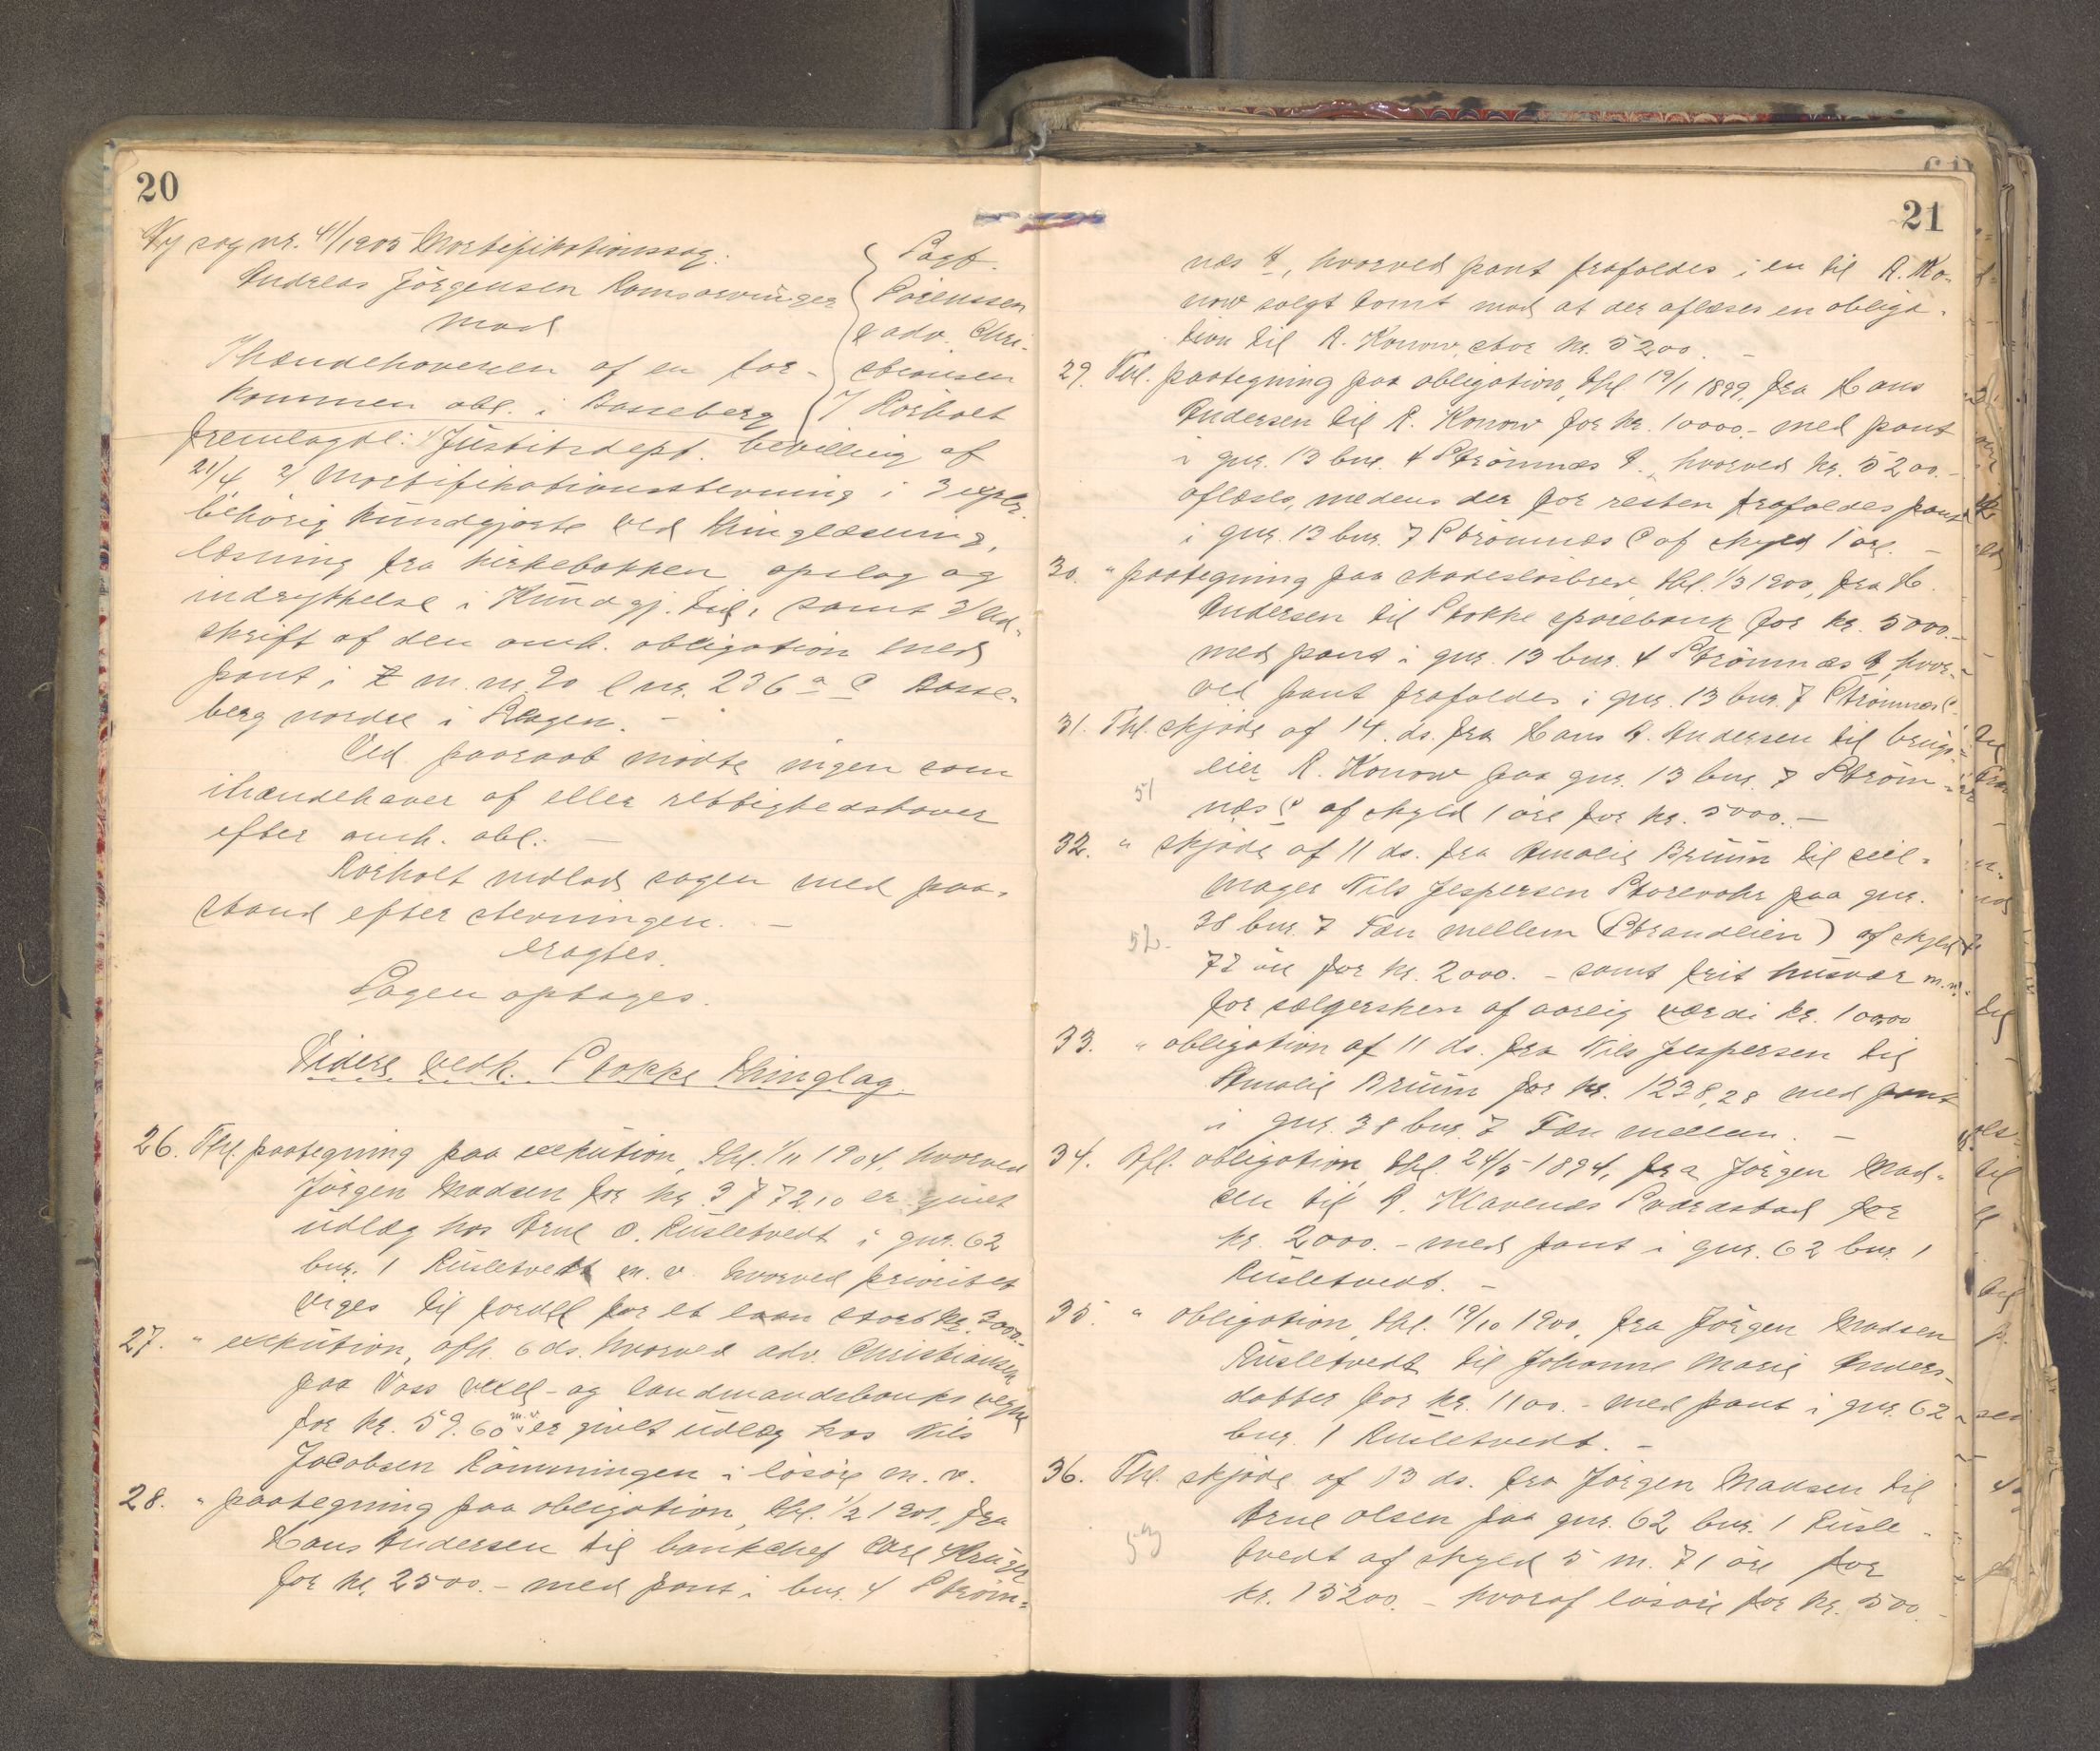 20
Ny sag nr. 41/1905 Mortifikationssag.
Andreas Jörgensen Ramsorvinger
mod
Ihændehaveren af en for-
kommen obl. i Basseberg
Sagf.
Sörenssen
& adv. Chri-
stiansen
v/ Rørholt
fremlagde: 1/ Justitsdept. bevilling af
21/4 2/ Mortifikationsstevning i 3 expl.
behörig kundgjorte ved thinglæsning,
læsning fra kirkebakken opslag og
indrykkelse i Kundgj. tid., samt 3/ Ud-
skrift af den omh. obligation med
pant i m. nr. 20 l. nr. 236 a C Basse-
berg nordre i Skogen. –
Ved paaraab mödte ingen som
ihændehaver af eller rettighedshaver
efter omh. obl. –
Rørholt indlod sagen med paa-
stand efter stevningen. –
Eragtes.
Sagen optages.
Videre vedk. Stokke thinglag.
26. Thl. paategning paa exekution, thl. 1/11 1904, hvorved
Jörgen Madsen for kr. 3772,10 er givet
udlæg hos Arne O. Rusletvedt i gnr. 62
bnr. 1 Rusletvedt m. v. hvorved prioritet
viges til fordel for et laan stort kr. 3000.-
27. " exekution, afh. 6 ds. hvorved adv. Christiansen
paa Voss vexel- og landmandsbanks vegne
for kr. 59.60 m.v. er givet udlæg hos Nils
Jacobsen Römmingen i lösöre m. v.
28. " paategning paa obligation, thl. 1/2 1901, fra
Hans Andersen til bankchef Carl Krüger
for kr. 2500.- med pant i bnr. 4 Ström-
21
næs A, hvorved pant frafaldes i en til A. Ko-
now solgt tomt mod at der aflæses en obliga-
tion til A. Konow, stor kr. 5200. –
29. Thl. paategning paa obligation, thl. 19/1 1899, fra Hans
Andersen til A. Konow for kr. 10000.- med pant
i gnr. 13 bnr. 4 Strömnæs A., hvorved kr. 5200.-
aflæses, medens der for resten frafaldes pant
i gnr. 13 bnr. 7 Strömnæs C af skyld 1 öre. –
30. " paategning paa skadeslösbrev, thl. 1/3 1900, fra H.
Andersen til Stokke sparebank for kr. 5000.-
med pant i gnr. 13 bnr. 4 Strömnæs A, hvor-
ved pant frafaldes i gnr. 13 bnr. 7 Strömnæs C.
31. Thl. skjöde af 14. ds. fra Hans A. Andersen til brugs-
eier A. Konow paa gnr. 13 bnr. 7 Ström-
51
næs C af skyld 1 öre for kr. 5000.–
32. " skjöde af 11 ds. fra Amalie Bruun til seil-
mager Nils Jespersen Storevahr paa gnr.
52.
38 bnr. 7 Fæn mellem (Strandleien) af skyld
72 öre for kr. 2000. – samt frit husvær m. v.
for sælgersken af aarlig værdi kr. 100,00
33. " obligation af 11 ds. fra Nils Jespersen til
Amalie Bruun for kr. 1238,28 med pant
i gnr. 38 bnr. 7 Fæn mellem. –
34. Afl. obligation, thl. 24/5 1894, fra Jörgen Mad-
sen til A. Klavenæs Sværdstad for
kr. 2000. – med pant i gnr. 62 bnr. 1
Rusletvedt. –
35. " obligation, thl. 19/10 1900, fra Jörgen Madsen
Rusletvedt til Johanne Marie Anders-
datter for kr. 1100. – med pant i gnr. 62
bnr. 1 Rusletvedt. –
36. Thl. skjöde af 13 ds. fra Jörgen Madsen til
Arne Olsen paa gnr. 62 bnr. 1 Rusle-
53
tvedt af skyld 5 m. 71 öre for
kr. 15200. – hvoraf lösöre for kr. 500. –